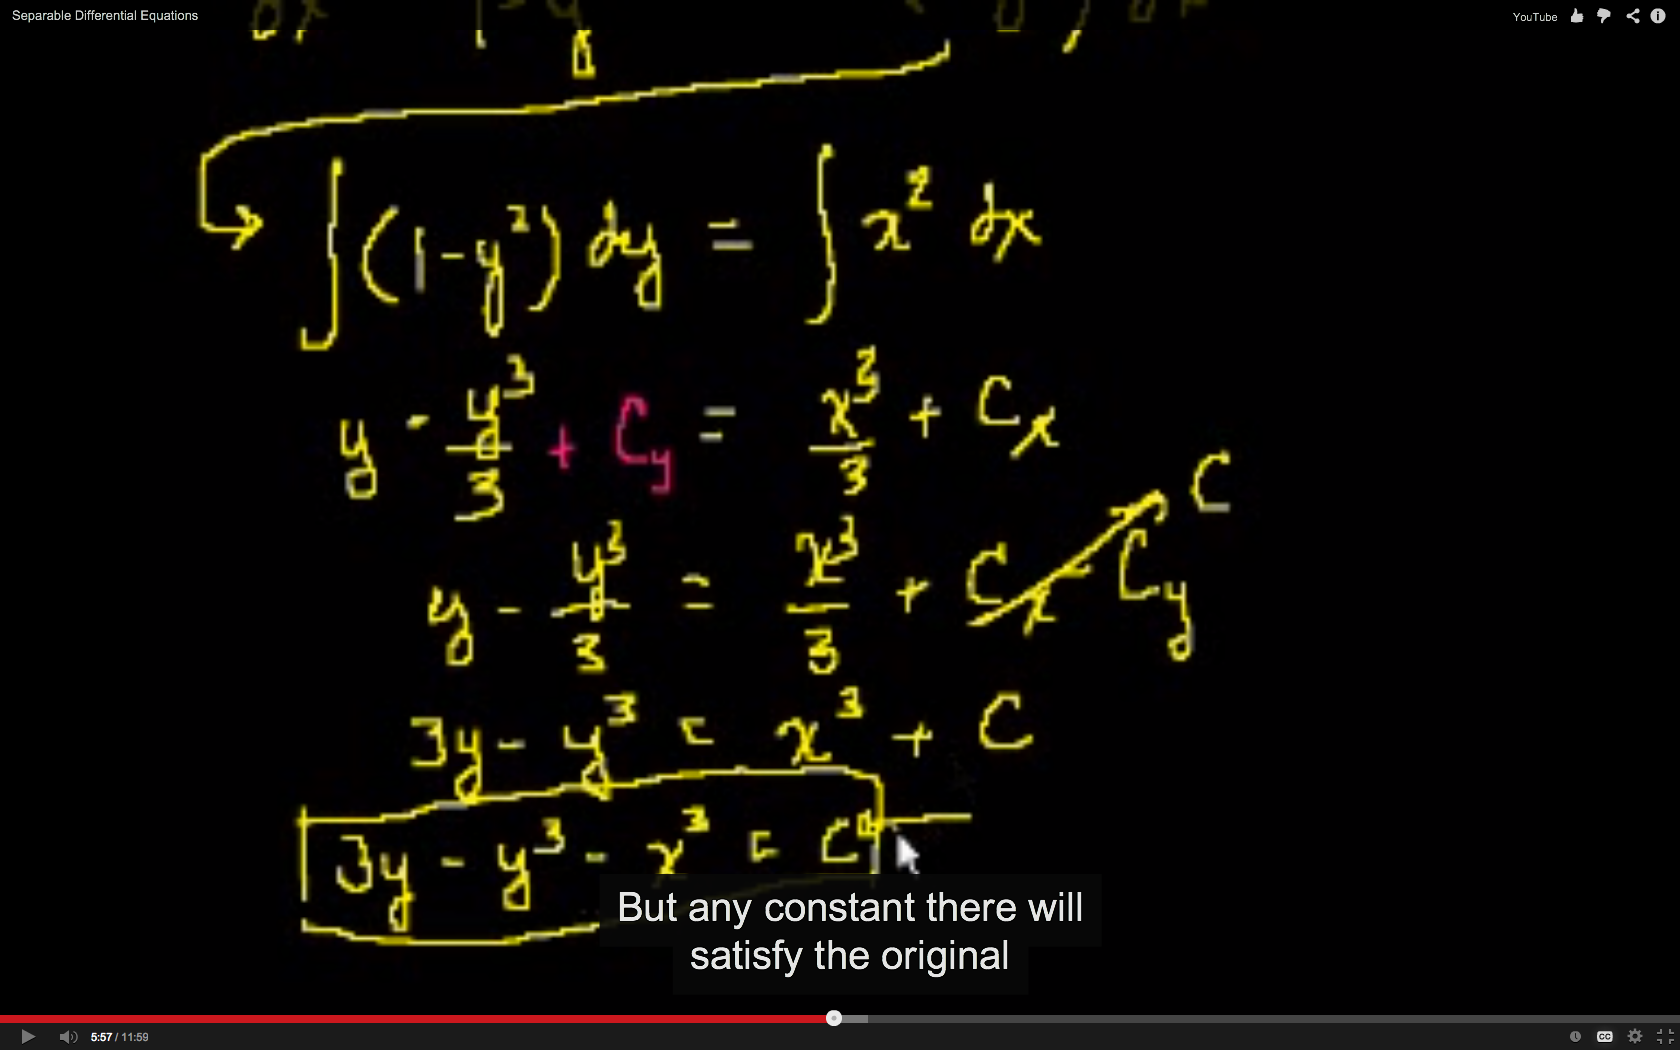 Separable Differential Equations
YouTube
∫(1-y²) dy = ∫ x² dx
y - y³/3 + C_y = x³/3 + C_x
C
y - y³/3 = x³/3 + C_x - C_y
3y - y³ = x³ + C
3y - y³ - x³ = C
But any constant there will
satisfy the original
5:57 / 11:59
CC